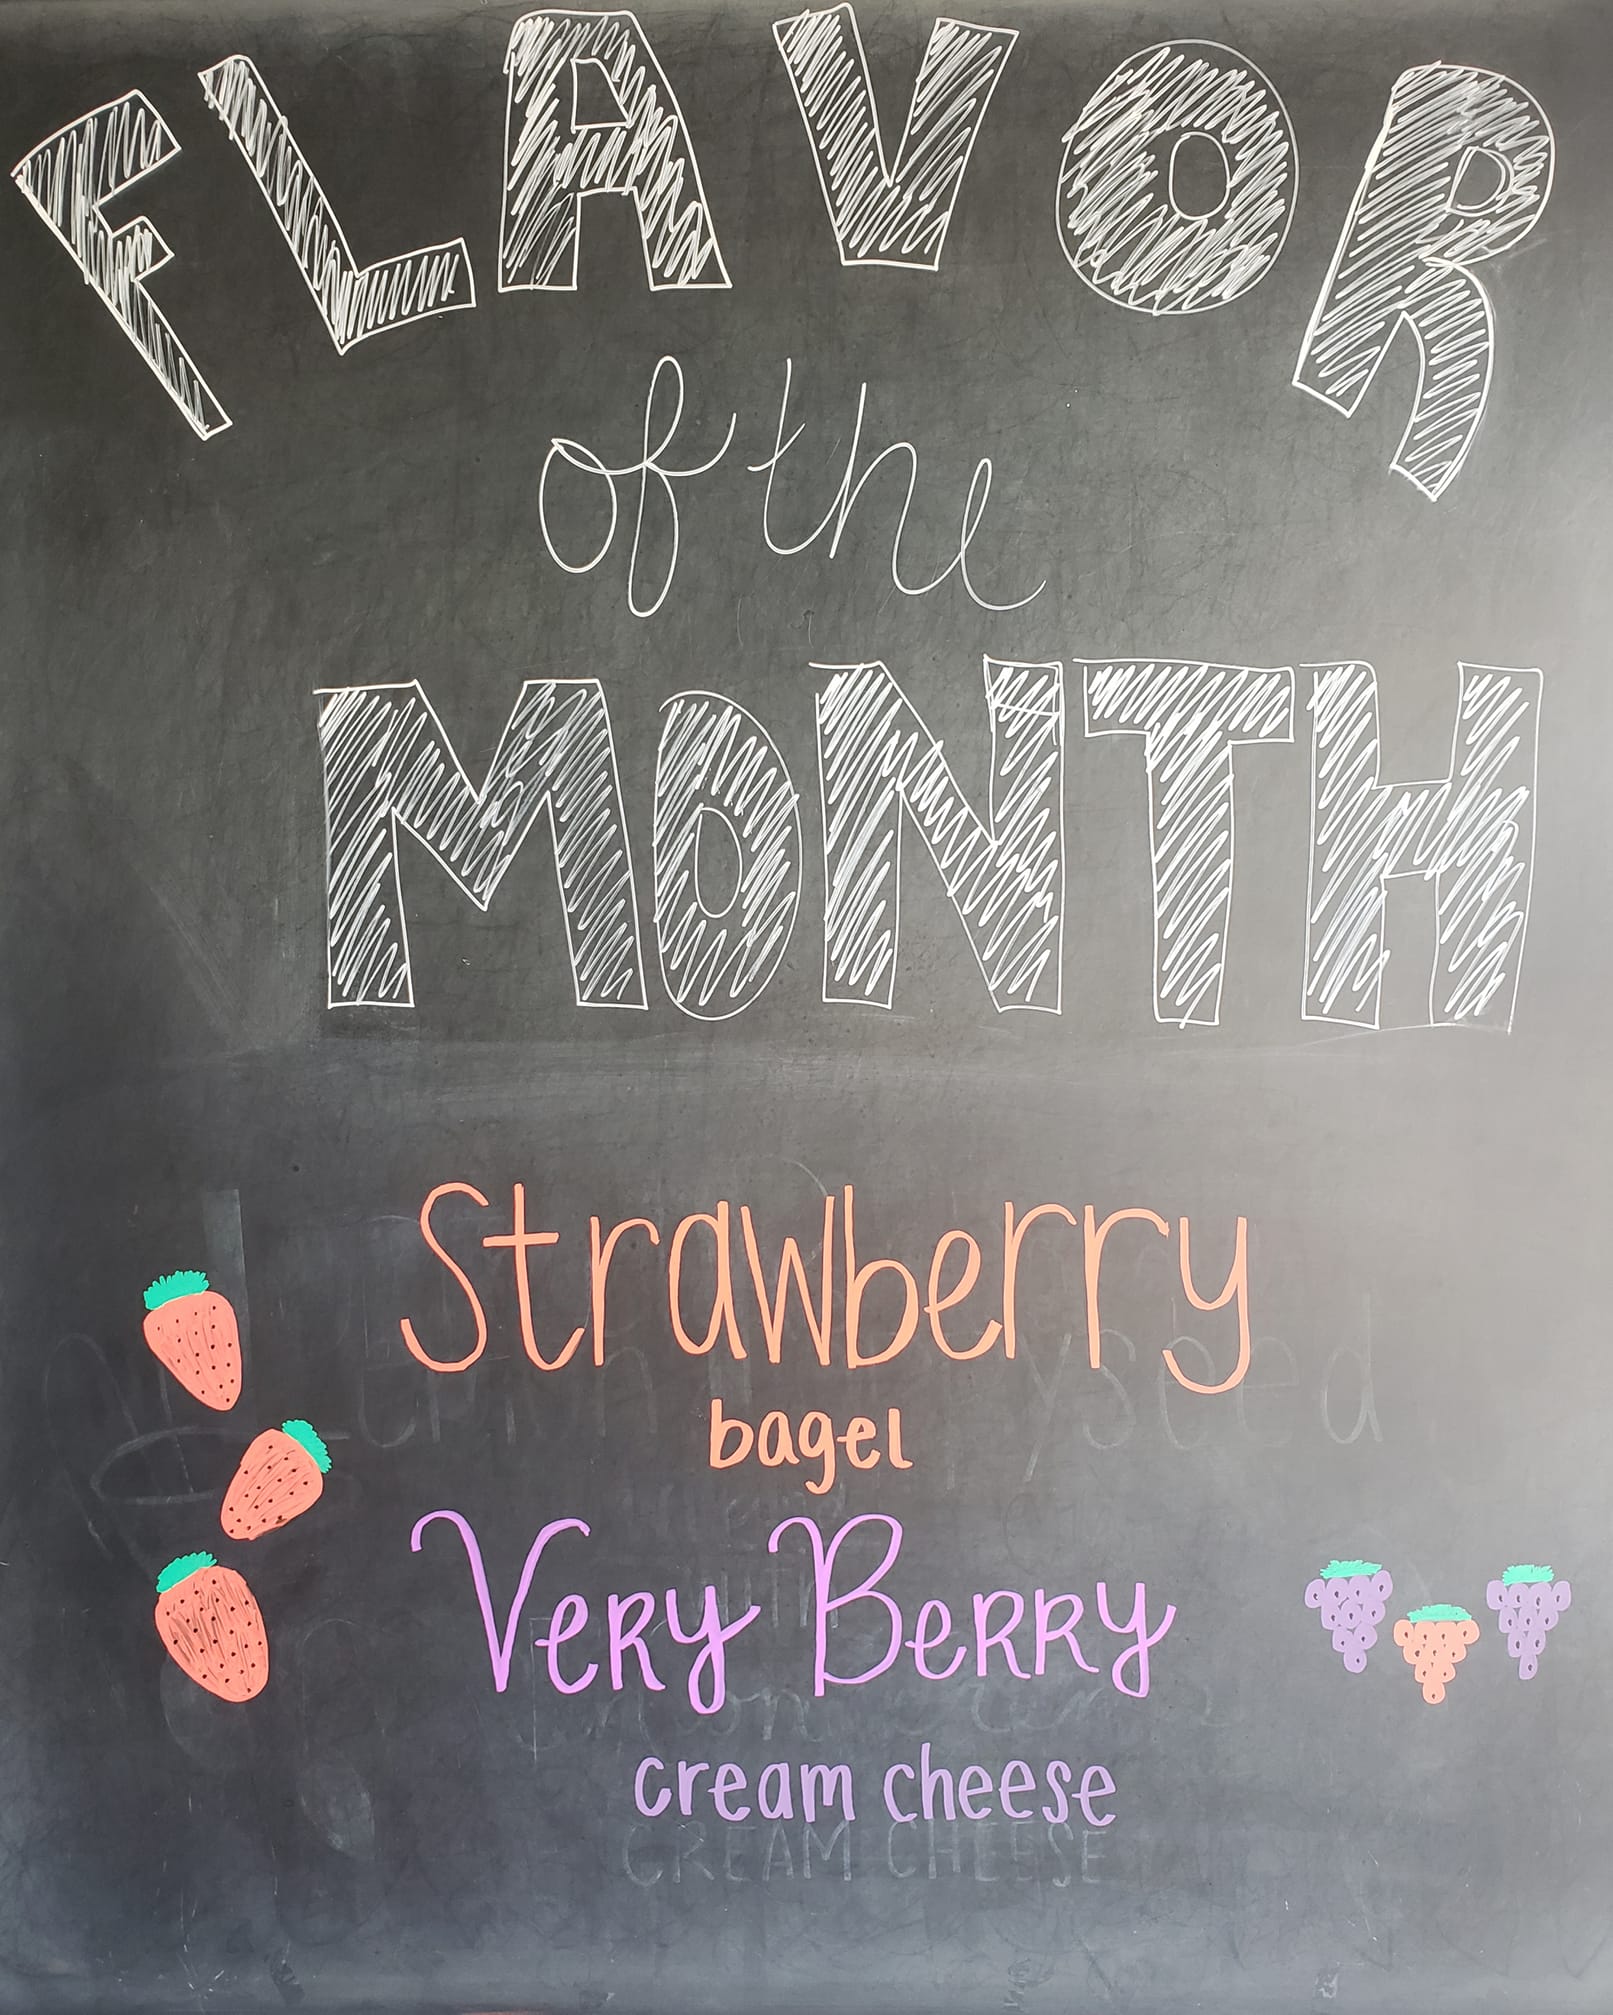 FLAVOR
of the
MONTH
Strawberry
bagel
Very Berry
cream cheese
CREAM CHEESE